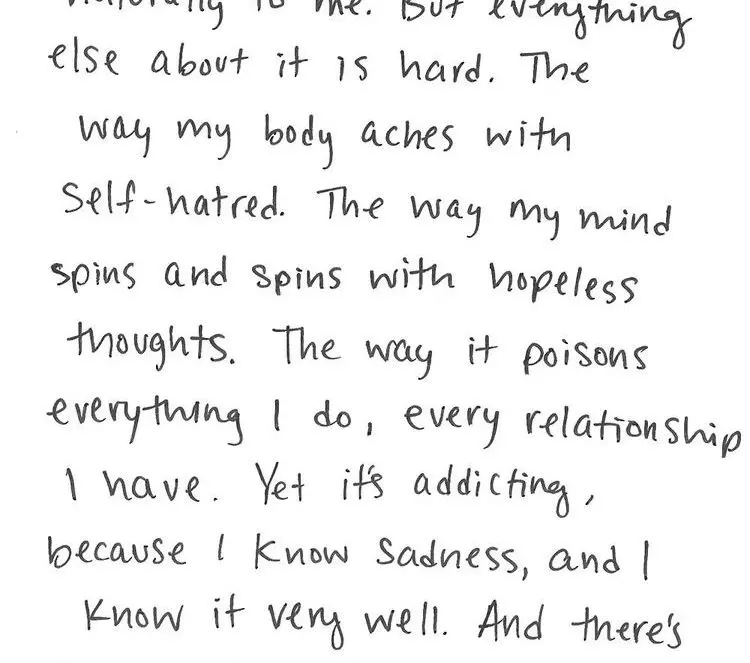 to me. But everything
else about it is hard. The
way my body aches with
self-hatred. The way my mind
spins and spins with hopeless
thoughts. The way it poisons
everything I do, every relationship
I have. Yet it's addicting,
because I know sadness, and I
know it very well. And there's